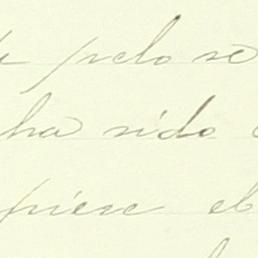 pelo se
ha sido
piese el